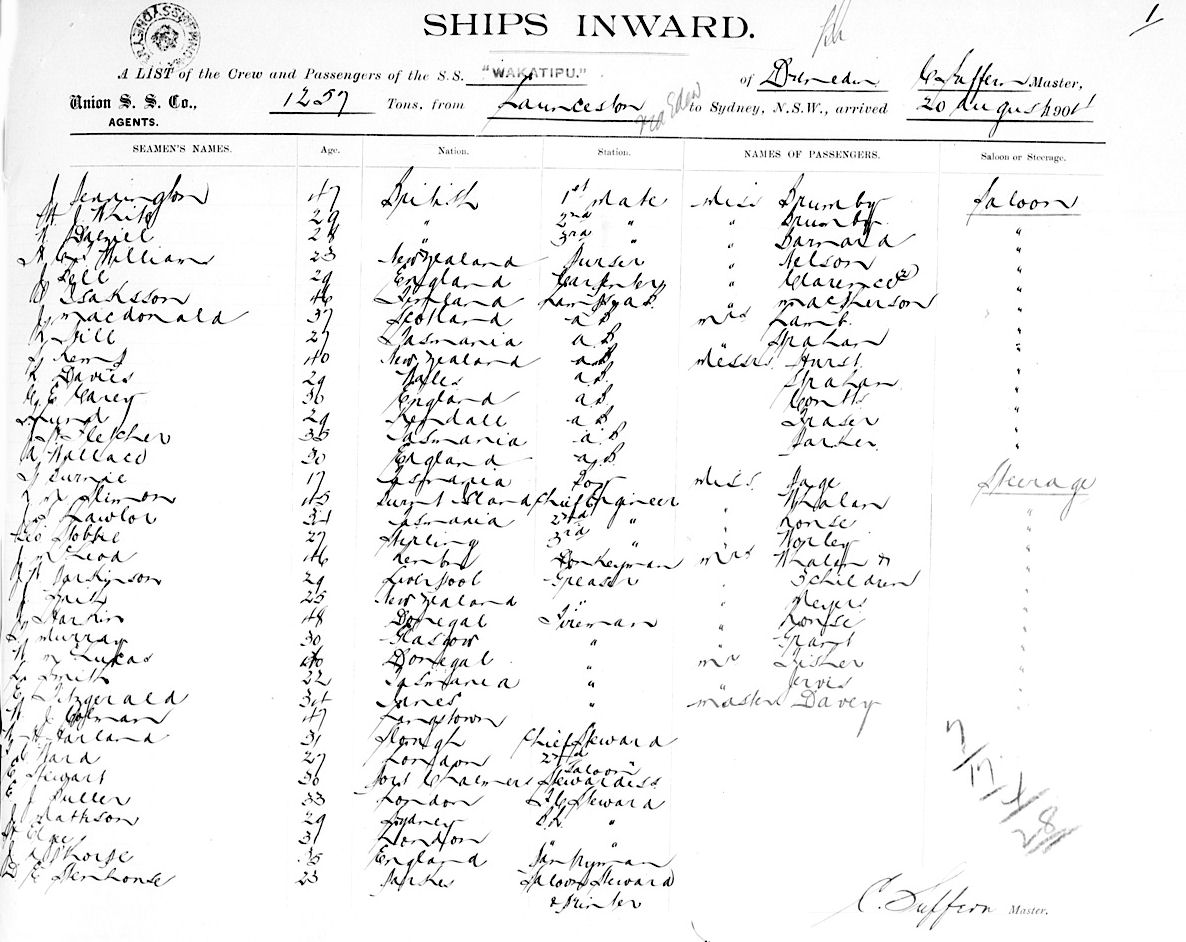 SHIPS INWARD.
1
A LIST of the Crew and Passengers of the S.S. "WAKATIPU." of Dunedin C. Suffern Master,
Union S. S. Co., 1257 Tons, from Launceston via Eden to Sydney, N.S.W., arrived 20 August 1901
AGENTS.
SEAMEN'S NAMES. Age. Nation. Station. NAMES OF PASSENGERS. Saloon or Steerage.
J Pennington 47 British 1st Mate Miss Brumby Saloon
J White 29 " 2nd " " Brumby "
Daniel " 3rd " " Barnard "
McWilliam 23 New Zealand Purser " Nelson "
J Bell 29 England Carpenter " Clarence (2) "
Isaksson 46 Lamps & a.b. " MacPherson "
J Macdonald 37 Scotland a B Mrs Lamb "
Hill 27 Tasmania a.B Graham "
Kemp 40 New Zealand a.B Messrs Hurst "
Davies 29 Wales a.B. Graham "
E Carey 36 England a.B. "
Lund 29 Kendall a.B Fraser "
Fletcher 35 Tasmania a.B Parker "
Wallace 30 England a.B.
Burnie 17 Tasmania Boy Miss Page Steerage
Simon 45 Burnt Island Chief Engineer " Whalan
Jas Lawlor Tasmania 2nd " " Rouse "
Geo Dobbie 27 Stirling 3rd " Worley "
McLeod 46 Donkeyman Mrs Whalan & "
Parkinson 29 Liverpool Greaser " 3 children "
25 New Zealand " " Meyers "
Harkin 48 Donegal Fireman " Rouse "
Murray 30 Glasgow " " Grant "
Lukas 40 Donegal " Mr Fisher "
Smith 22 Tasmania " " Jervis "
E Fitzgerald 34 " Master Davey "
J Colman 47
Harland 31 Chief Steward
Ward 27 London 2nd Saloon
E Stewart 36 Port Chalmers Stewardess
E J Puller 33 London F.C Steward
J Mathson 29 Sydney "
Edge 31 London
J Thorpe 35 England Pantryman
D E Stenhouse 23 Saloon Steward
& Printer
C. Suffern Master.